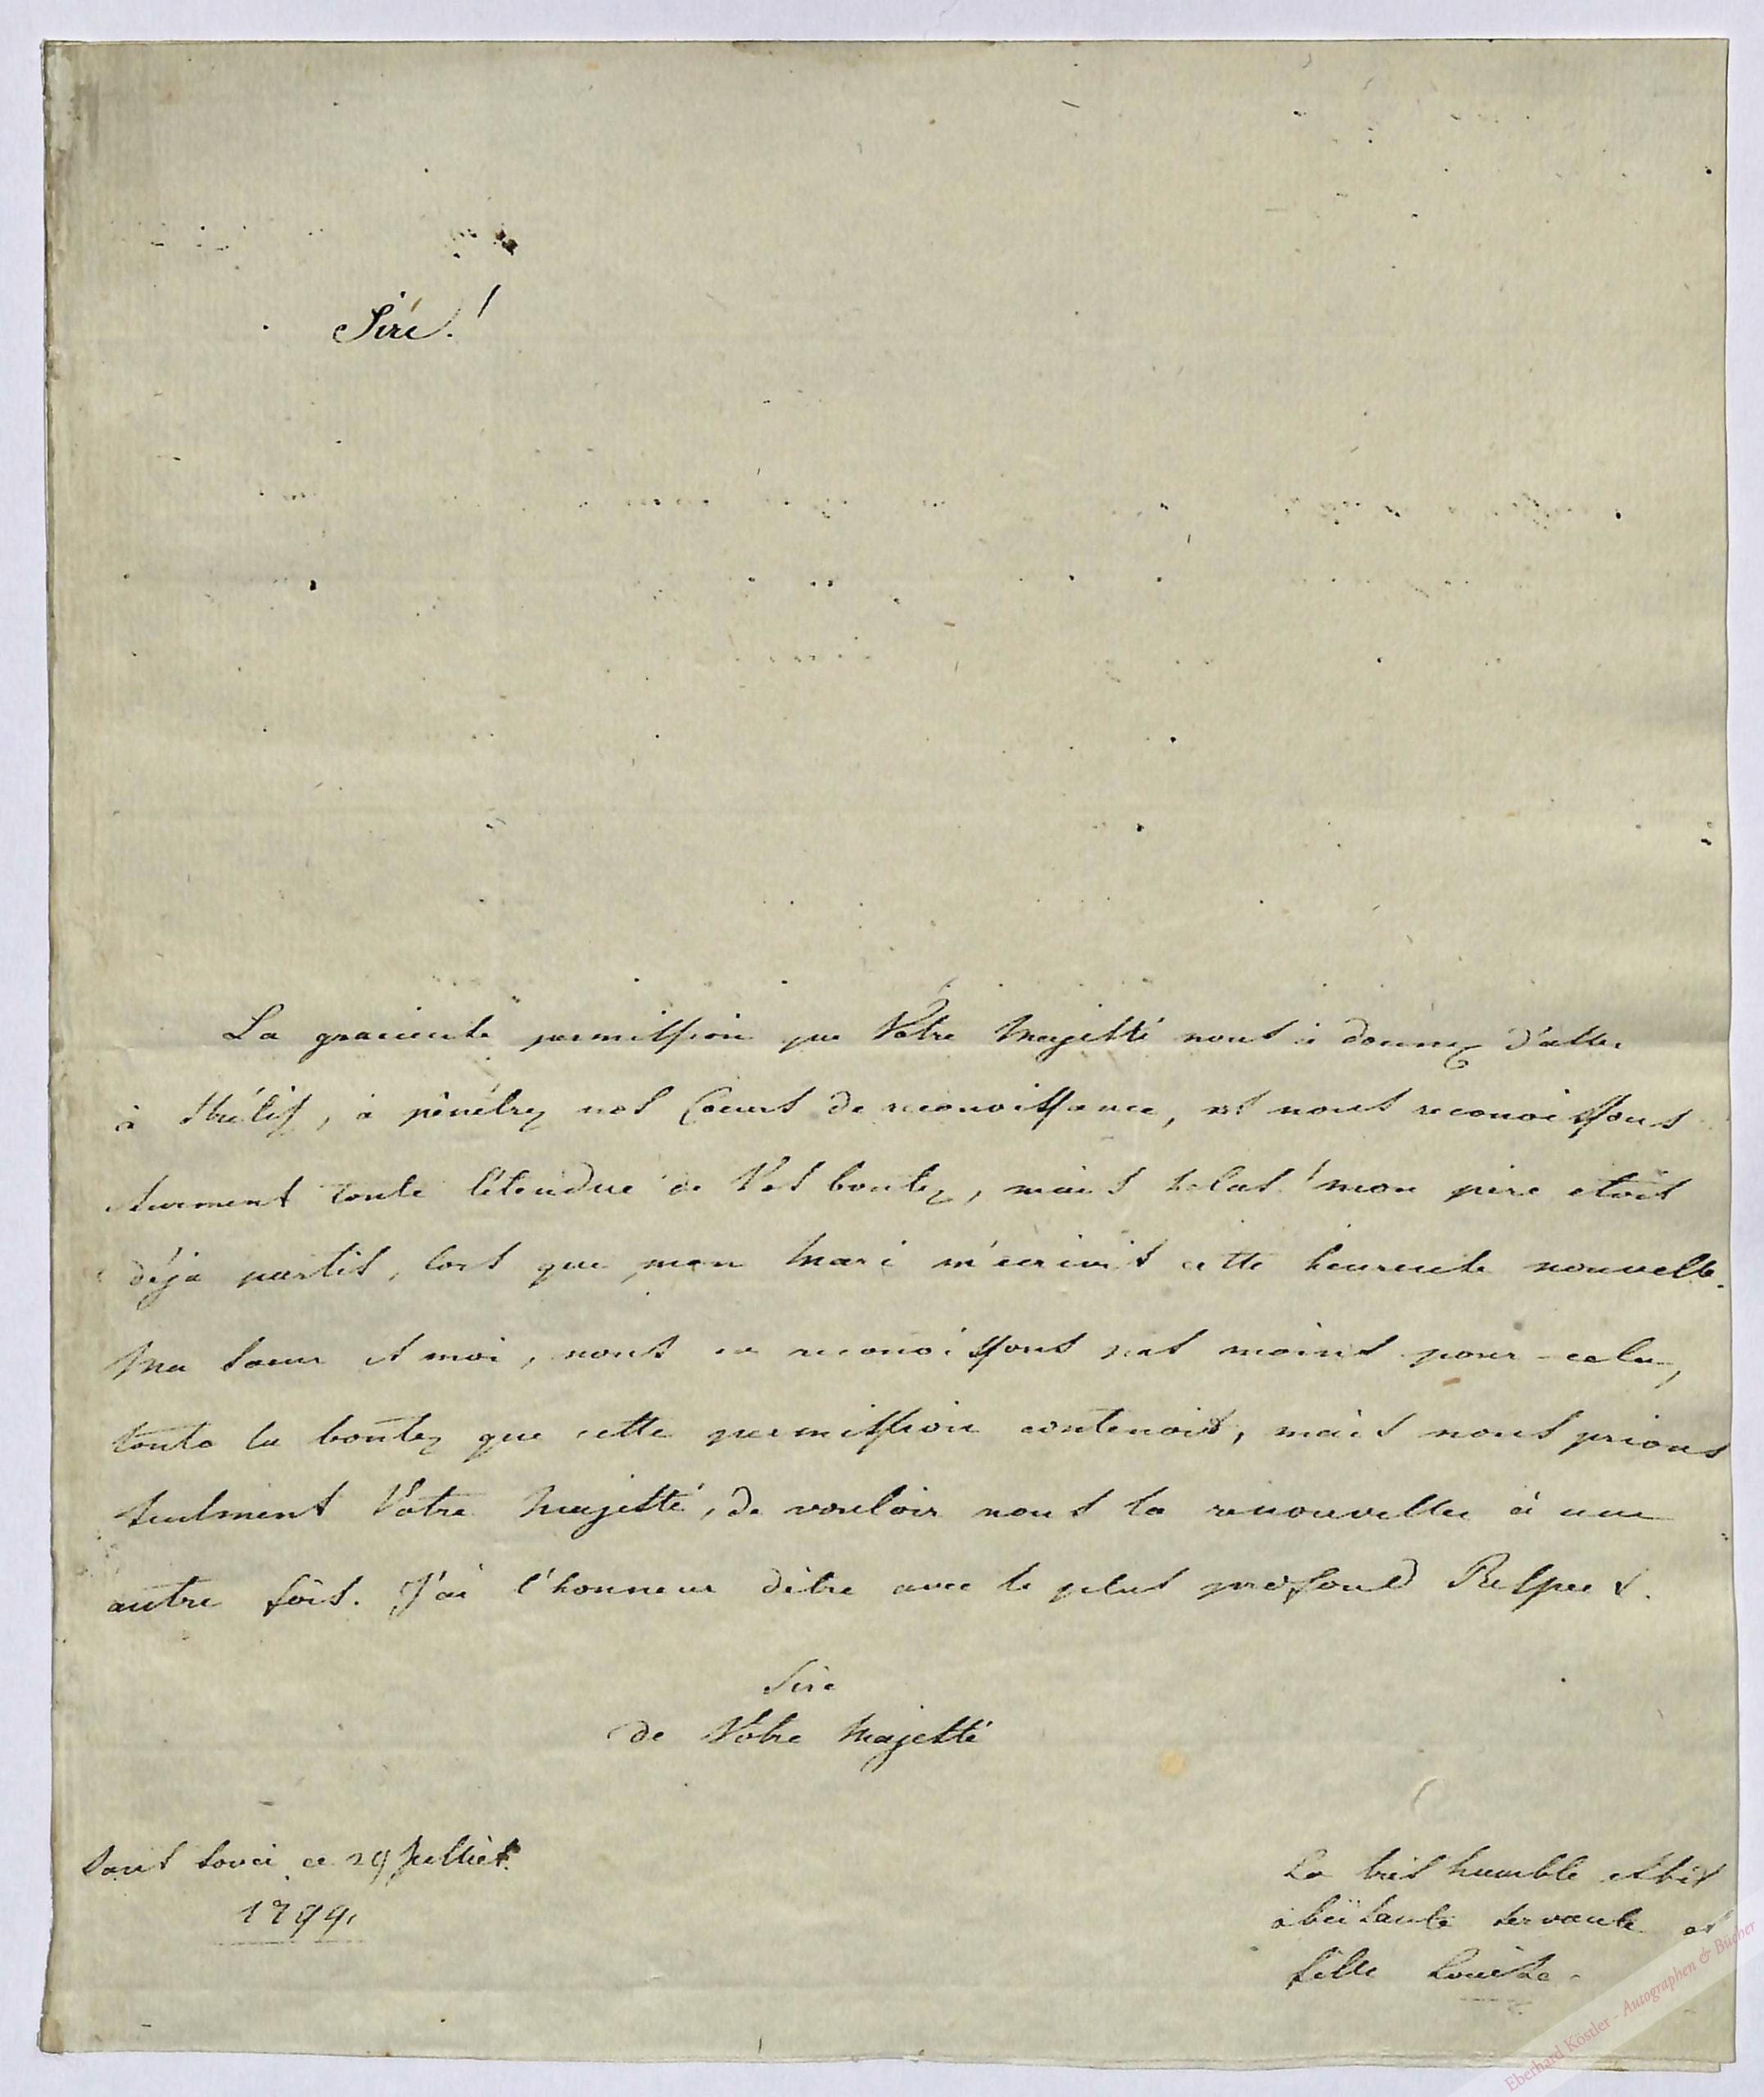 Sire!
La gracieuse permission que Votre Majesté nous à donnez d'aller
à, à pènétrez nos Coeurs de reconoissance, et nous reconoissons
surement toute l'étendue de Vos bontez, mais helas! mon père etoit
déja partis, lors que mon Mari m'ecrivit cette heureuse nouvelle.
Ma soeur et moi, nous ne reconoissons pas moins pour cela,
toute la bontez que cette permission contenoit, mais nous prions
seulment Votre Majesté, de vouloir nous la renouveller à une
autre fois. J'ai l'honneur dètre avec le plus profond Respect.
Sire
de Votre Majesté
Sans Souci ce 29 Julliet.
1794.
La très humble et très
obeïsante servante et
fille Louise.
Eberhard Köstler - Autographen & Bücher